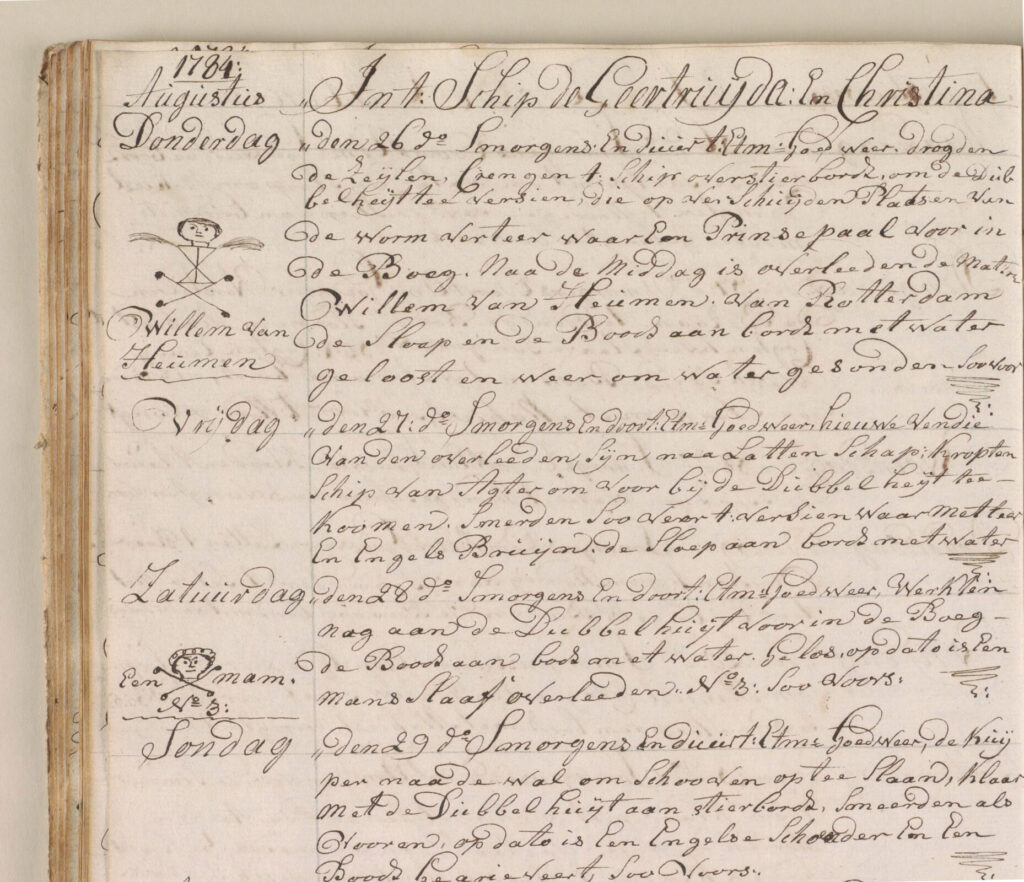 1784:
Augustus
„Int: Schip de Geertruijda: En Christina
Donderdag
„den 26 do Smorgens: En duurt: Etm: Goed weer. drogden
de Zeylen, Crengen t. Schip overstierbord, om de Dub
belheijt tee versien, die op verSchuijden Plaatsen van
de worm verteer waar Een Prinsepaal voor in
de Boeg. Naa de Middag is overleeden de Matn
Willem van Heumen. van Rotterdam
de Sloep en de Boodt aan bord met water
geloost en weer om water gesonden Soo voor
Willem van
Heumen
Vrijdag
„den 27: do. Smorgens En doort: Etm: Goed weer, hieuwe vendie
van den overleeden Sijn naa Latten Schap: Kropten
Schip van Agter om voor bij de Dubbel heijt tee–
Koomen. Smerden Soo veer t. versien waar met teer
En Engels Bruijn. de Sloep aan bord met water
Zatuurdag
„den 28 do Smorgens En doort: Etm: Goed weer, Werkten
nog aan de Dubbelhuijt voor in de Boeg–
de Boodt aan bodt met water. Gelos, op dato is Een
mans Slaaf overleeden. No 3: Soo voors:
Een mam.
No 3:
Sondag
„den 29 do Smorgens En duurt: Etm: Goed weer, de Kuij
per naa de wal om Schooven op tee Slaan, Klaar
met de Dubbelhuijt aan stierbord, Smeerden als
vooren, op dato is Een Engelse Schonder En Een
Boodt Gearieveert, Soo voors: